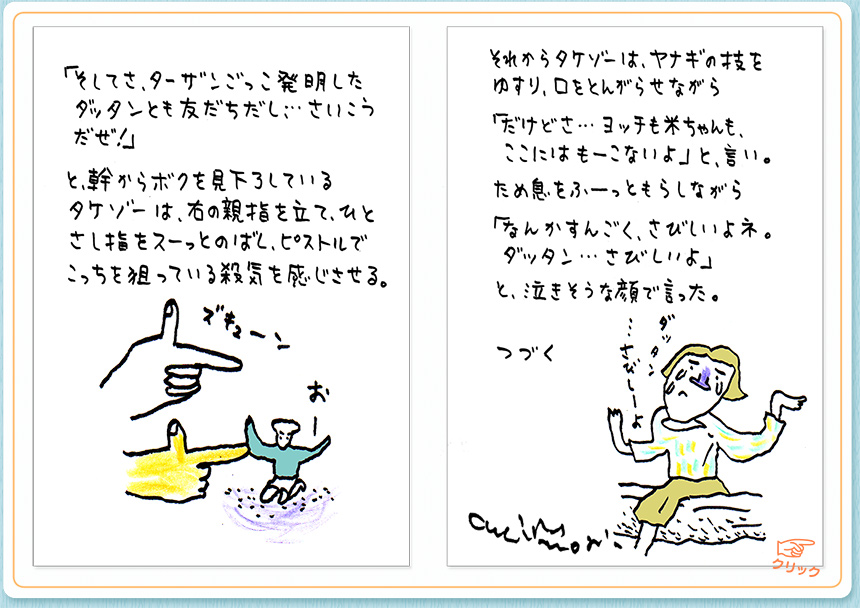 「そしてさ、ターザンごっこ発明した
ダッタンとも友だちだし…さいこう
だぜ！」
と、幹からボクを見下ろしている
タケゾーは、右の親指を立て、ひと
さし指をスーっとのばし、ピストルで
こっちを狙っている殺気を感じさせる。
ズキューーン
おー
それからタケゾーは、ヤナギの技を
ゆすり、口をとんがらせながら
「だけどさ…ヨッチも米ちゃんも、
ここにはもーこないよ」と、言い。
ため息をふーっともらしながら
「なんかすんごく、さびしいよネ。
ダッタン…さびしいよ」
と、泣きそうな顔で言った。
つづく
ダッタン
…さびしーよ
クリック